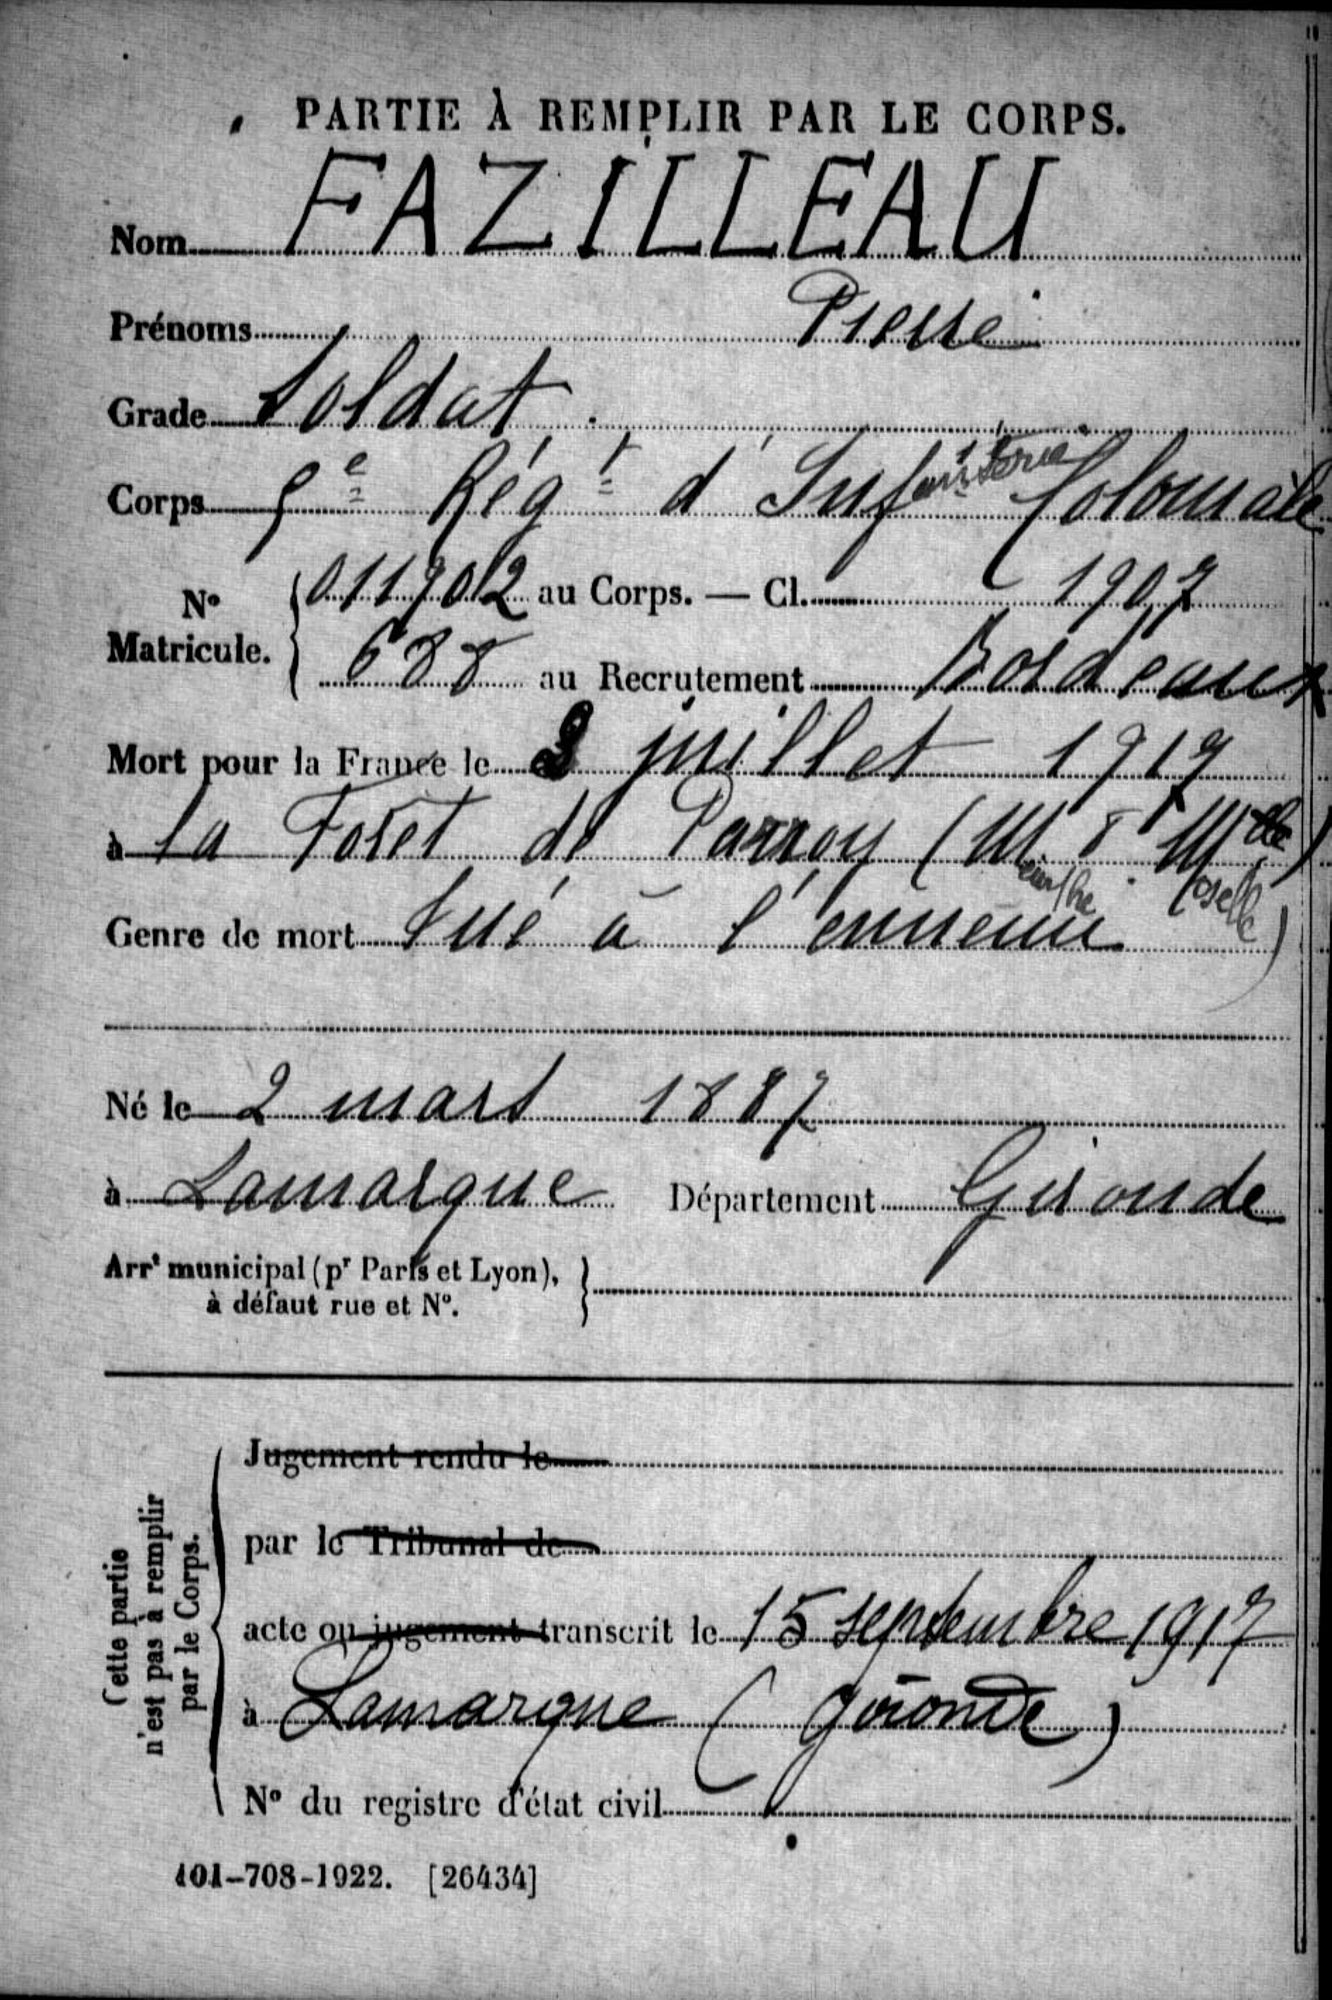 PARTIE À REMPLIR PAR LE CORPS.
Nom FAZILLEAU
Prénoms Pierre
Grade Soldat
Corps 5e Régt d'Infanterie Coloniale
No Matricule. 011902 au Corps. — Cl. 1907
688 au Recrutement Bordeaux
Mort pour la France le 2 juillet 1917
à la Forêt de Parroy (M & Mlle)
eurthe oselle)
Genre de mort tué à l'ennemi
Né le 2 mars 1887
à Lamarque Département Gironde
Arrt municipal (pr Paris et Lyon),
à défaut rue et No.
Cette partie
n'est pas à remplir
par le Corps.
Jugement rendu le
par le Tribunal de
acte ou jugement transcrit le 15 septembre 1917
à Lamarque (Gironde)
No du registre d'état civil
101-708-1922. [26434]